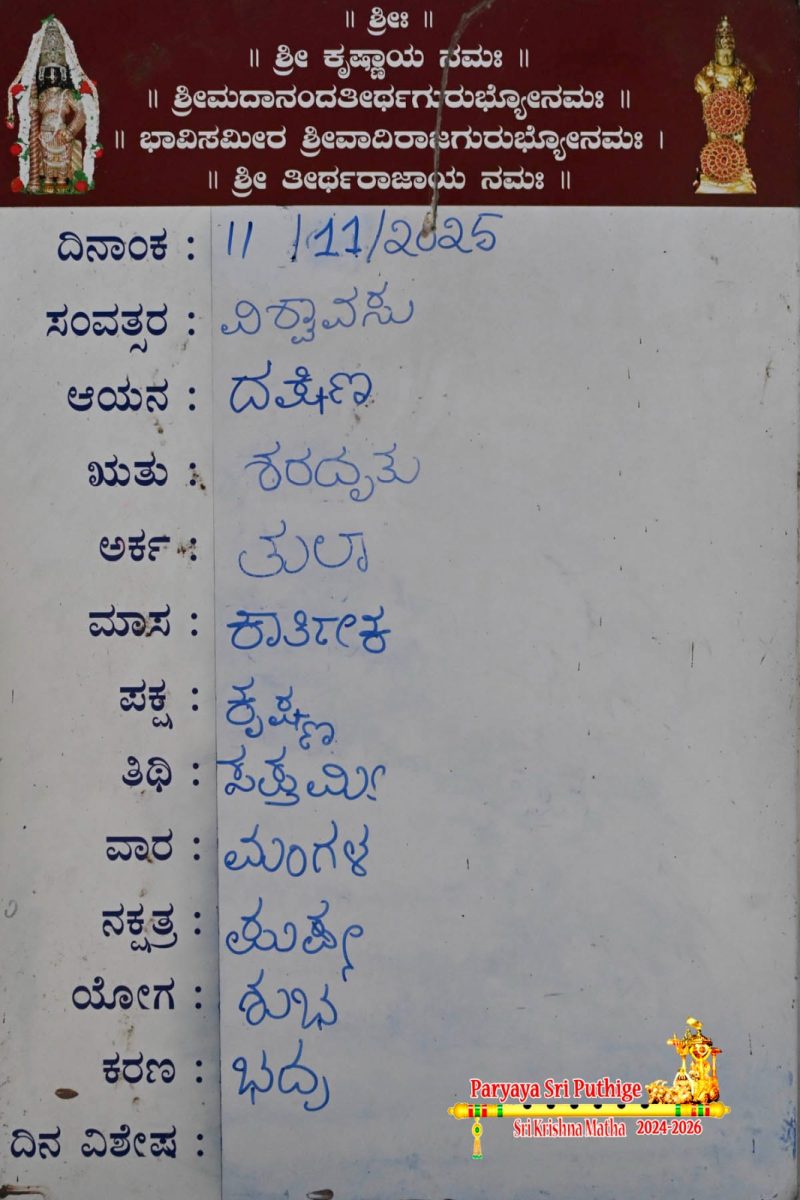 ॥ ಶ್ರೀಃ ॥
॥ ಶ್ರೀ ಕೃಷ್ಣಾಯ ನಮಃ ॥
॥ ಶ್ರೀಮದಾನಂದತೀರ್ಥಗುರುಭ್ಯೋನಮಃ ॥
॥ ಭಾವಿಸಮೀರ ಶ್ರೀವಾದಿರಾಜಗುರುಭ್ಯೋನಮಃ ।
॥ ಶ್ರೀ ತೀರ್ಥರಾಜಾಯ ನಮಃ ॥
ದಿನಾಂಕ : 11 /11/2025
ಸಂವತ್ಸರ : ವಿಶ್ವಾವಸು
ಆಯನ : ದಕ್ಷಿಣ
ಋತು : ಶರದೃತು
ಅರ್ಕ : ತುಲಾ
ಮಾಸ : ಕಾರ್ತೀಕ
ಪಕ್ಷ : ಕೃಷ್ಣ
ತಿಥಿ : ಸಪ್ತಮೀ
ವಾರ : ಮಂಗಳ
ನಕ್ಷತ್ರ : ಪುಷ್ಯ
ಯೋಗ : ಶುಭ
ಕರಣ : ಭದ್ರ
ದಿನ ವಿಶೇಷ :
Paryaya Sri Puthige
Sri Krishna Matha 2024-2026